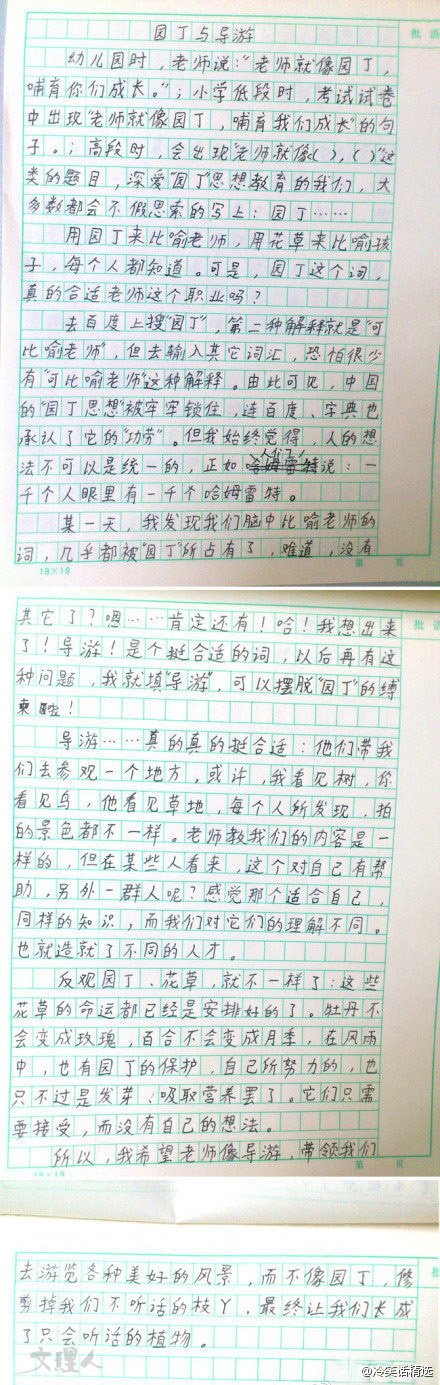 批语
园丁与导游
幼儿园时，老师说："老师就像园丁，
哺育你们成长。"；小学低段时，考试试卷
中出现"老师就像园丁，哺育我们成长"的句
子。；高段时，会出现"老师就像( )，( )"这
类的题目，深爱"园丁"思想教育的我们，大
多数都会不假思索的写上：园丁……
用园丁来比喻老师，用花草来比喻孩
子，每个人都知道。可是，园丁这个词，
真的合适老师这个职业吗？
去百度上搜"园丁"，第二种解释就是"可
比喻老师"，但去输入其它词汇，恐怕很少
有"可比喻老师"这种解释。由此可见，中国
的"园丁思想"被牢牢锁住，连百度、字典也
承认了它的"功劳"。但我始终觉得，人的想
法不可以是统一的，正如人们说：一
千个人眼里有一千个哈姆雷特。
某一天，我发现我们脑中比喻老师的
词，几乎都被"园丁"所占有了，难道，没有
18×19
第 页
批语
其它了？嗯……肯定还有！哈！我想出来
了！导游！是个挺合适的词，以后再有这
种问题，我就填"导游"，可以摆脱"园丁"的缚
束啦！
导游……真的真的挺合适：他们带我
们去参观一个地方，或许，我看见树，你
看见鸟，他看见草地，每个人所发现，拍
的景色都不一样。老师教我们的内容是一
样的，但在某些人看来，这个对自己有帮
助，另外一群人呢？感觉那个适合自己，
同样的知识，而我们对它们的理解不同。
也就造就了不同的人才。
反观园丁、花草，就不一样了：这些
花草的命运都已经是安排好的了。牡丹不
会变成玫瑰，百合不会变成月季，在风雨
中，也有园丁的保护，自己所努力的，也
只不过是发芽、吸取营养罢了。它们只需
要接受，而没有自己的想法。
所以，我希望老师像导游，带领我们
第 页
去游览各种美好的风景，而不像园丁，修
剪掉我们不听话的枝丫，最终让我们长成
了只会听话的植物。
文理人
@冷笑话精选